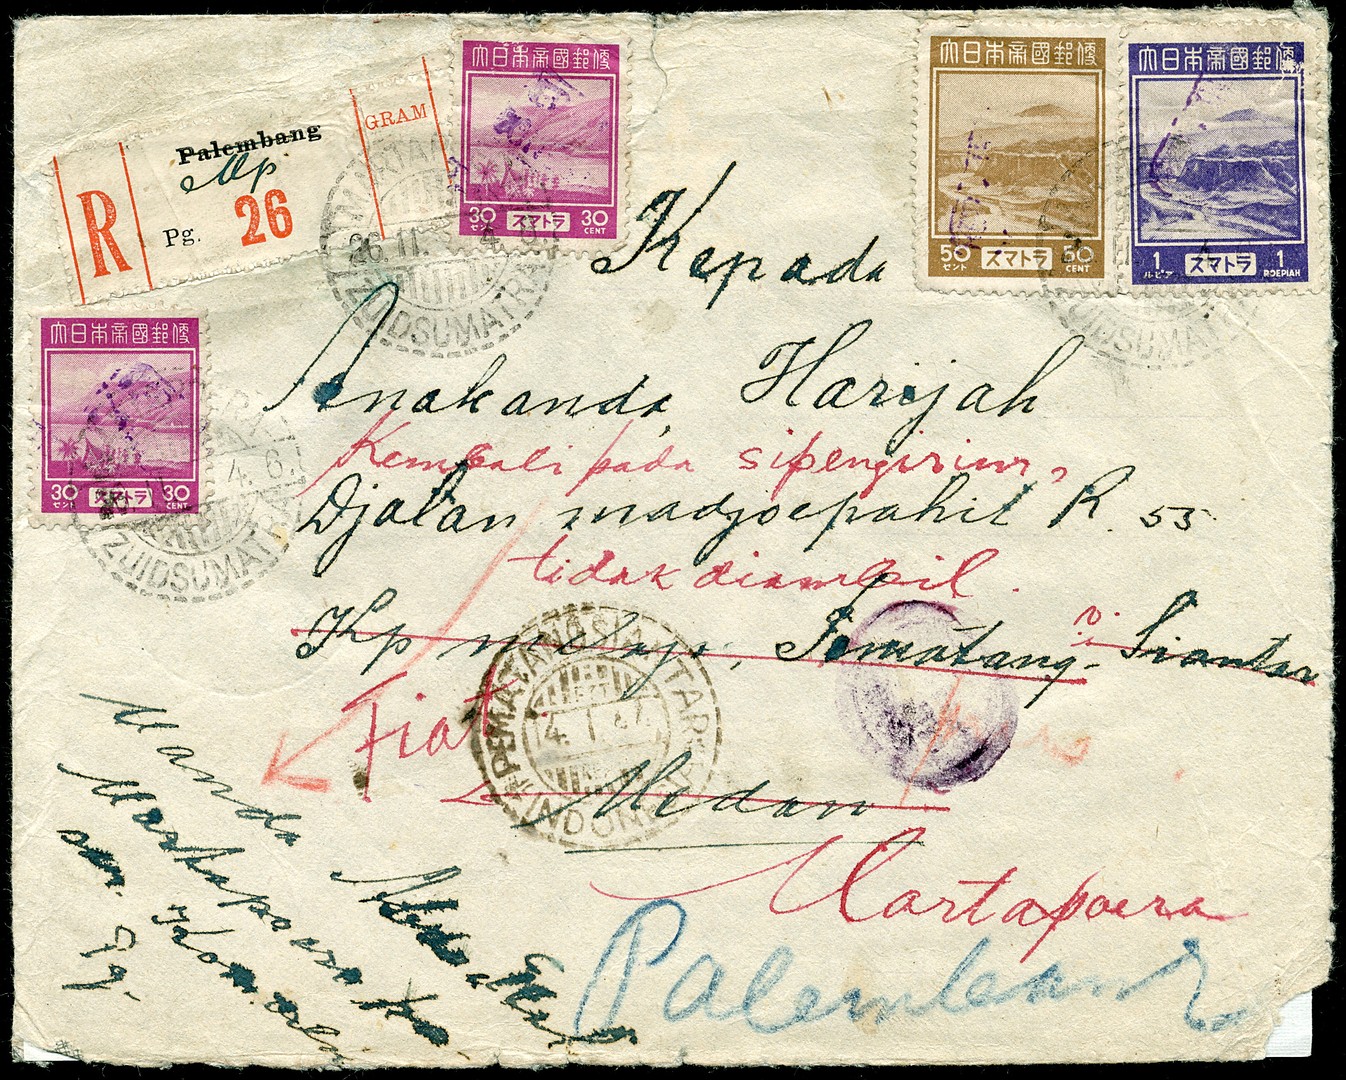 R
Palembang
Mp
Pg. 26
GRAM
大日本帝國郵便
30 スマトラ 30
セント CENT
大日本帝國郵便
50 スマトラ 50
セント CENT
大日本帝國郵便
1 スマトラ 1
ルピア ROEPIAH
大日本帝國郵便
30 スマトラ 30
セント CENT
26.11
ZUIDSUMATRA
ZUIDSUMATRA
4.6.
ZUIDSUMATRA
Kepada
Anakanda Harijah
Kembali pada sipengirim,
Djalan madjoepahit R 55
tidak diambil.
Kp melajoe, Pematang-Siantar
Fiat
PEMATANGSIANTAR
4.1.
INDONESIA
Medan
Martapoera
Palembang
Manda
Martapoera